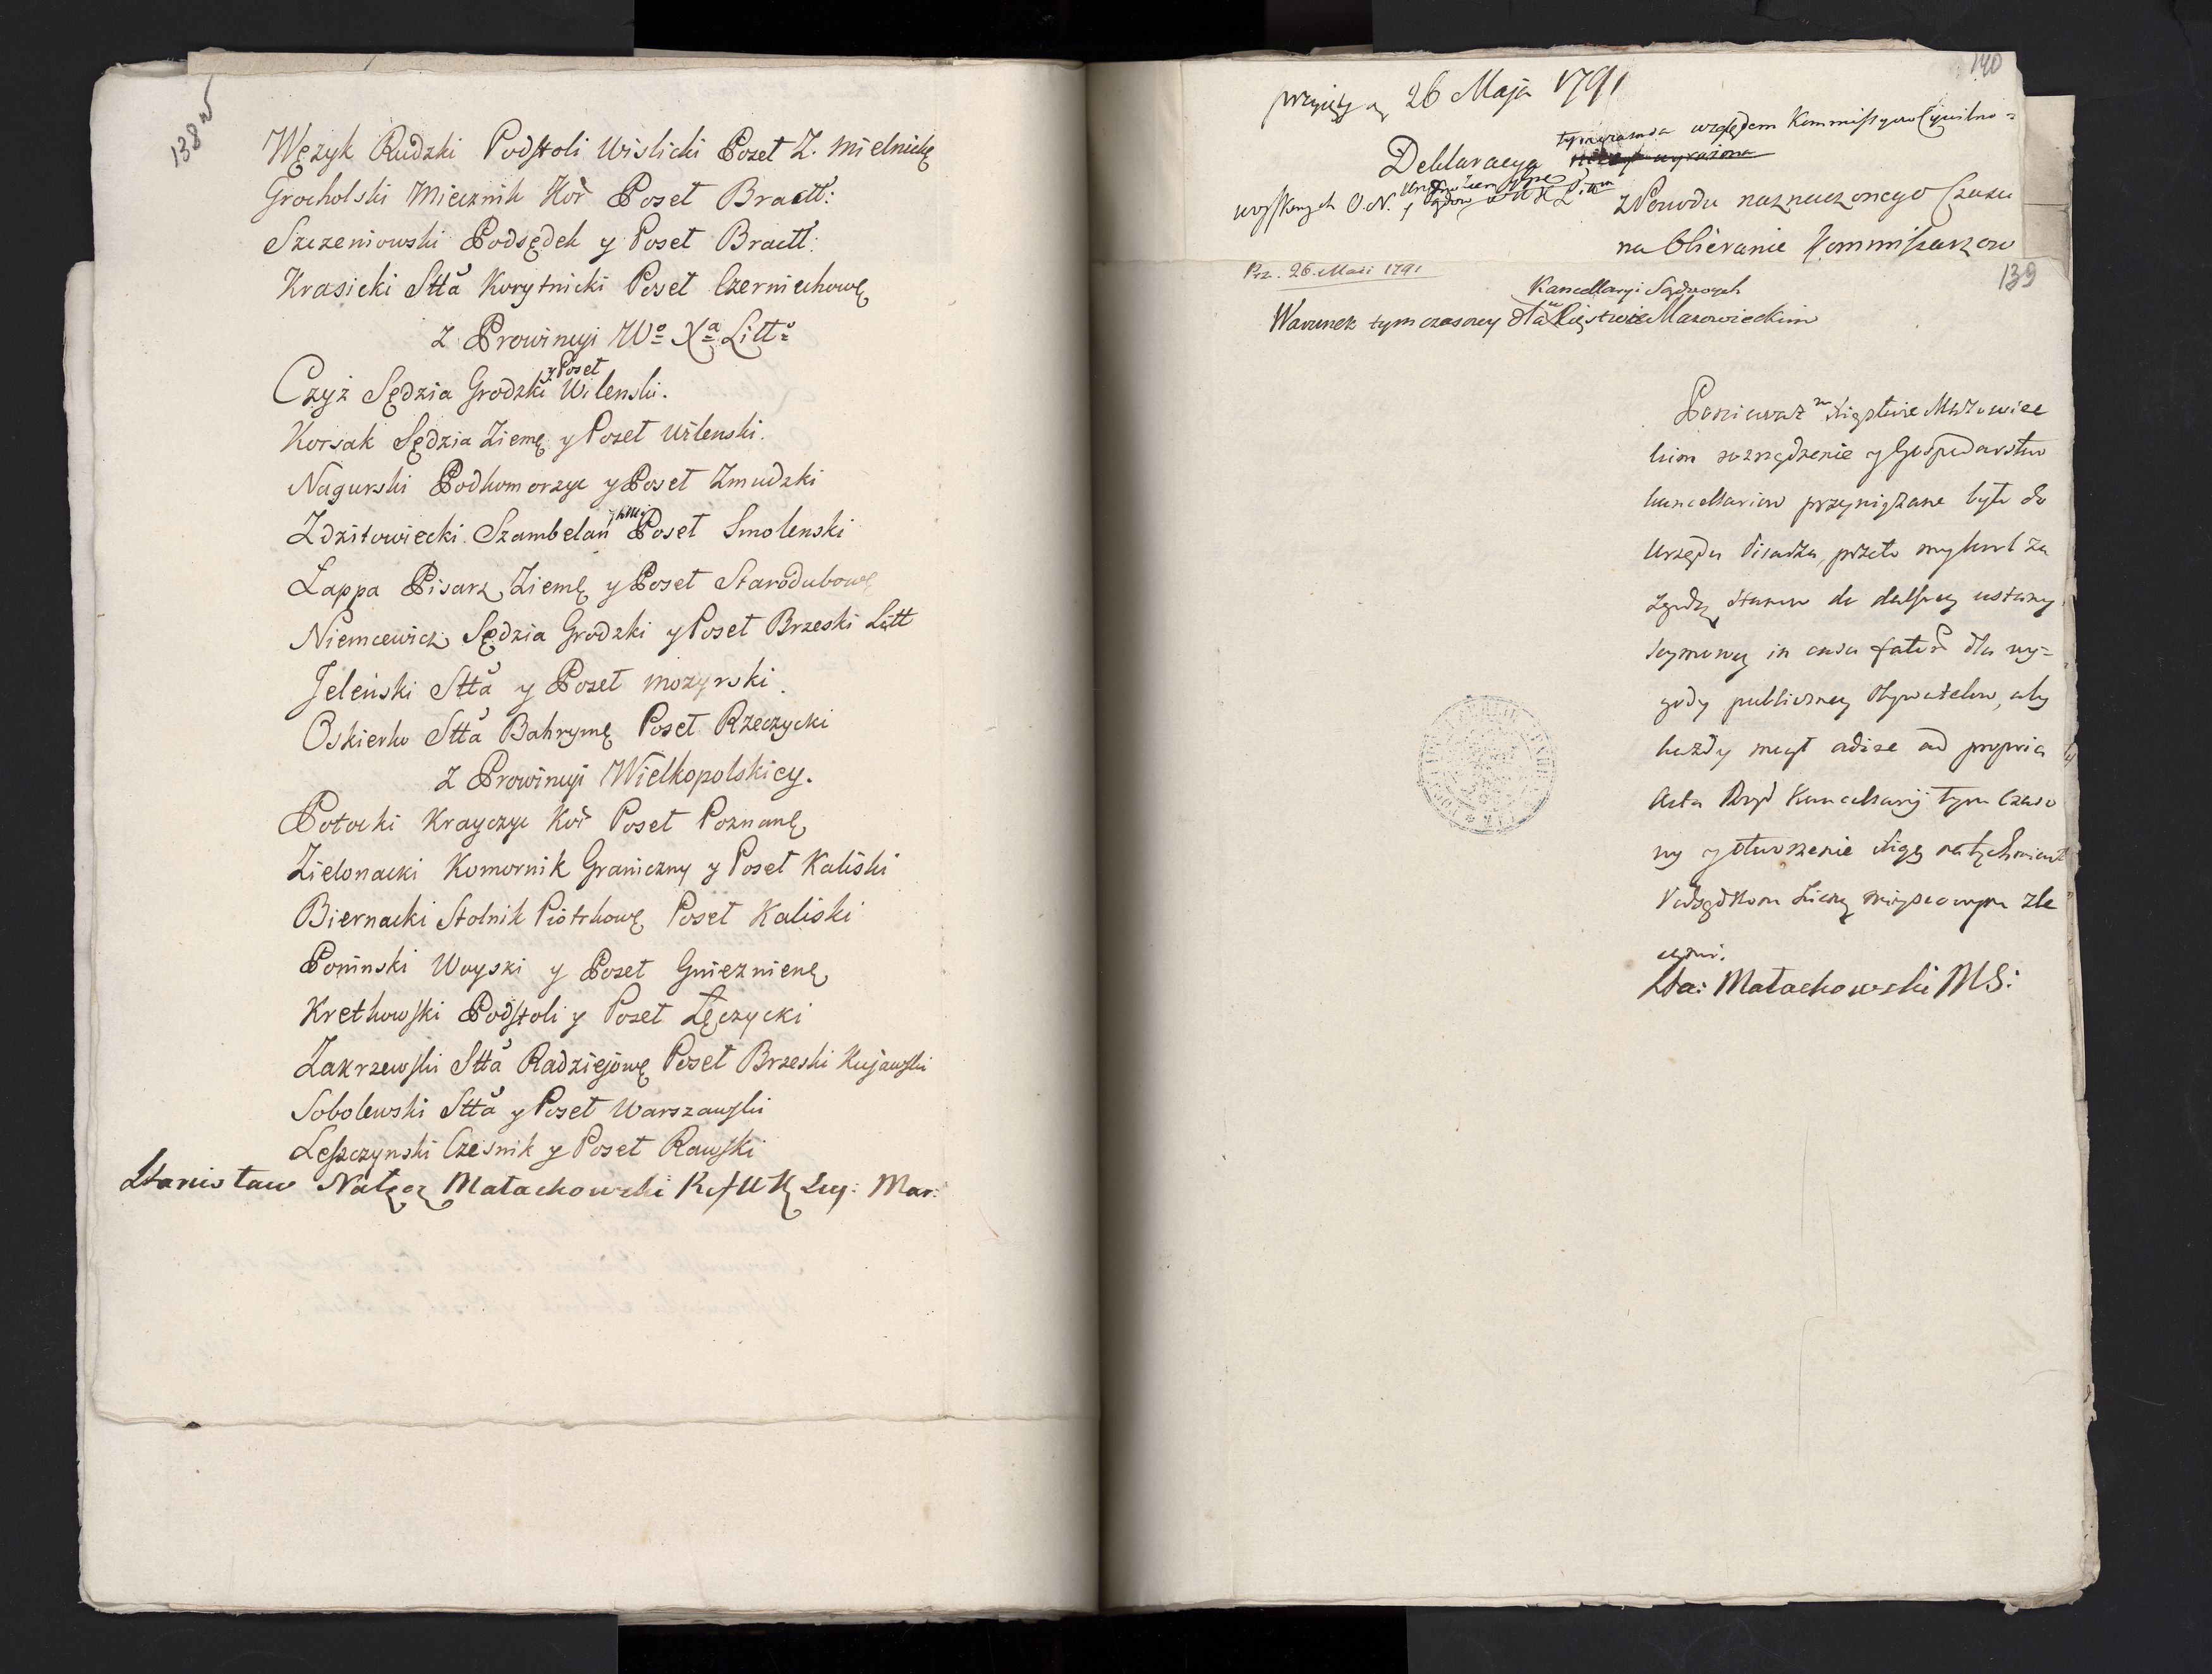 138v
Wężyk Rudzki Podstoli Wislicki Poseł Z. Mielnickę
Grocholski Miecznik Kor Poseł Bracłł:
Szczeniowski Podsędek y Poseł Bracłł:
Krasicki Sttā Korytnicki Poseł Czerniechowę
Z Prowincyi Wo Xa Litto
y Poseł
Czyż Sędzia Grodzki Wilenski.
Korsak Sędzia Ziemę y Poseł Wilenski.
Nagurski Podkomorzyc y Poseł Zmudzki
Zdzitowiecki Szambelan Poseł Smolenski
Łappa Pisarz Ziemę y Poseł Starodubowę
Niemcewicz Sędzia Grodzki y Poseł Brzeski Litt
Jeleński Sttā y Poseł Mozyrski.
Oskierko Sttā Bahrymę Poseł Rzeczycki
Z Prowincyi Wielkopolskiey.
Potocki Krayczyc Kor Poseł Poznanę
Zielonacki Komornik Graniczny y Poseł Kaliski
Biernacki Stolnik Piotrkowę Poseł Kaliski
Poninski Woyski y Poseł Gnieznienę
Kretkowski Podstoli y Poseł Łęczycki
Zakrzewski Sttā Radziejowę Poseł Brzeski Kujawski
Sobolewski Sttā y Poseł Warszawski
Leszczynski Czesnik y Poseł Rawski
Stanisław Nałęcz Małachowski Ref W K Sey: Mar:
140
przyięta 26 Maja 1791
tymczasowa względem Kommissyow Cywilno=
Deklaracya
woyskowych O. N.
z Powodu naznaczonego Czasu
na Obieranie Kommissarzow
139
Prz. 26. Maii 1791
Kancellaryi Sądowych
Warunek tymczasowy dla w Xięstwie Mazowieckim
Ponieważ w Xięstwie Mazowiec
kim rozrządzenie y Gospodarstwo
kancellariow przywiązane było do
Urzędu Pisarza, przeto my Krol za
zgodą stanow do dalszey ustawy
seymowey in casu fator dla wy=
gody publiczney Obywatelow, aby
każdy mogł adire ad propria
Acta Rząd Kancellaryi tym czaso
wy y otworzenie Xiąg natychmiast
Podsędkom Ziemę mieyscowym zle
camy.
Sta: Małachowski MS: